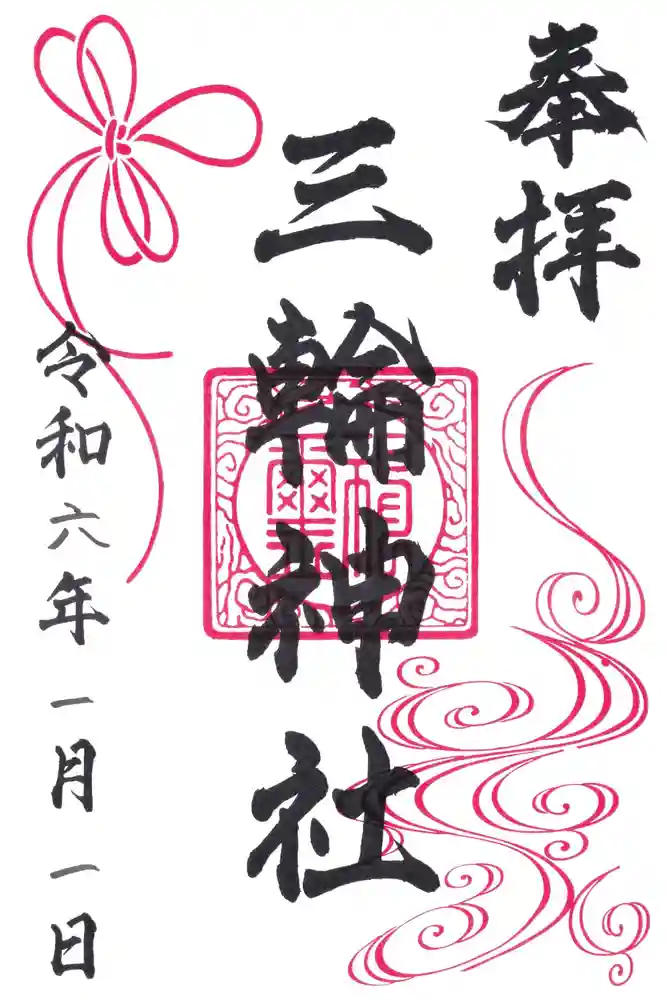 奉拝
三輪神社
令和六年一月一日